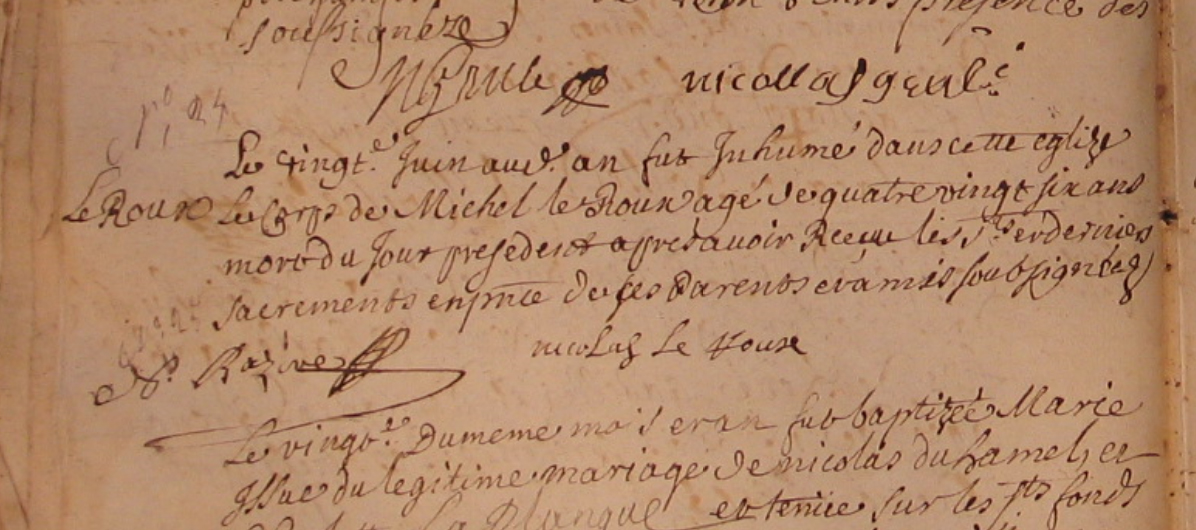 soussigneze
nicollas
Le vingt.e Juin aud. an fut Inhumé dans cette eglize
Le Roux Le Corps de Michel le Roux agé de quatre vingt six ans
mort du Jour presedent apres avoir Receu les Sts et derniers
sacrements en pnce de ses Parents et amis soubsignéez
nicolas Le Roux
Le vingt.e Du meme mois et an fut baptizée Marie
Issue du legitime mariage de nicolas duhamel, et
et tenue sur les Sts fonds